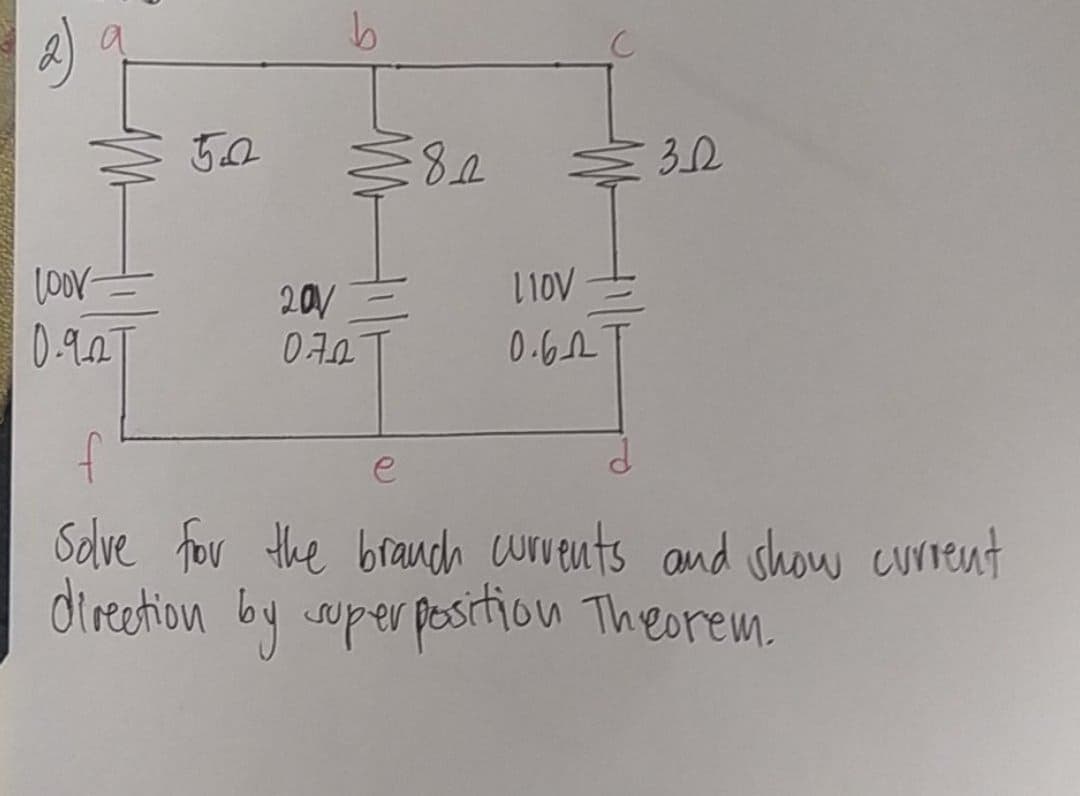 2) a b c
5Ω 8Ω 3Ω
100V 20V 110V
0.9Ω 0.7Ω 0.6Ω
f e d
Solve for the branch currents and show current
direction by superposition Theorem.